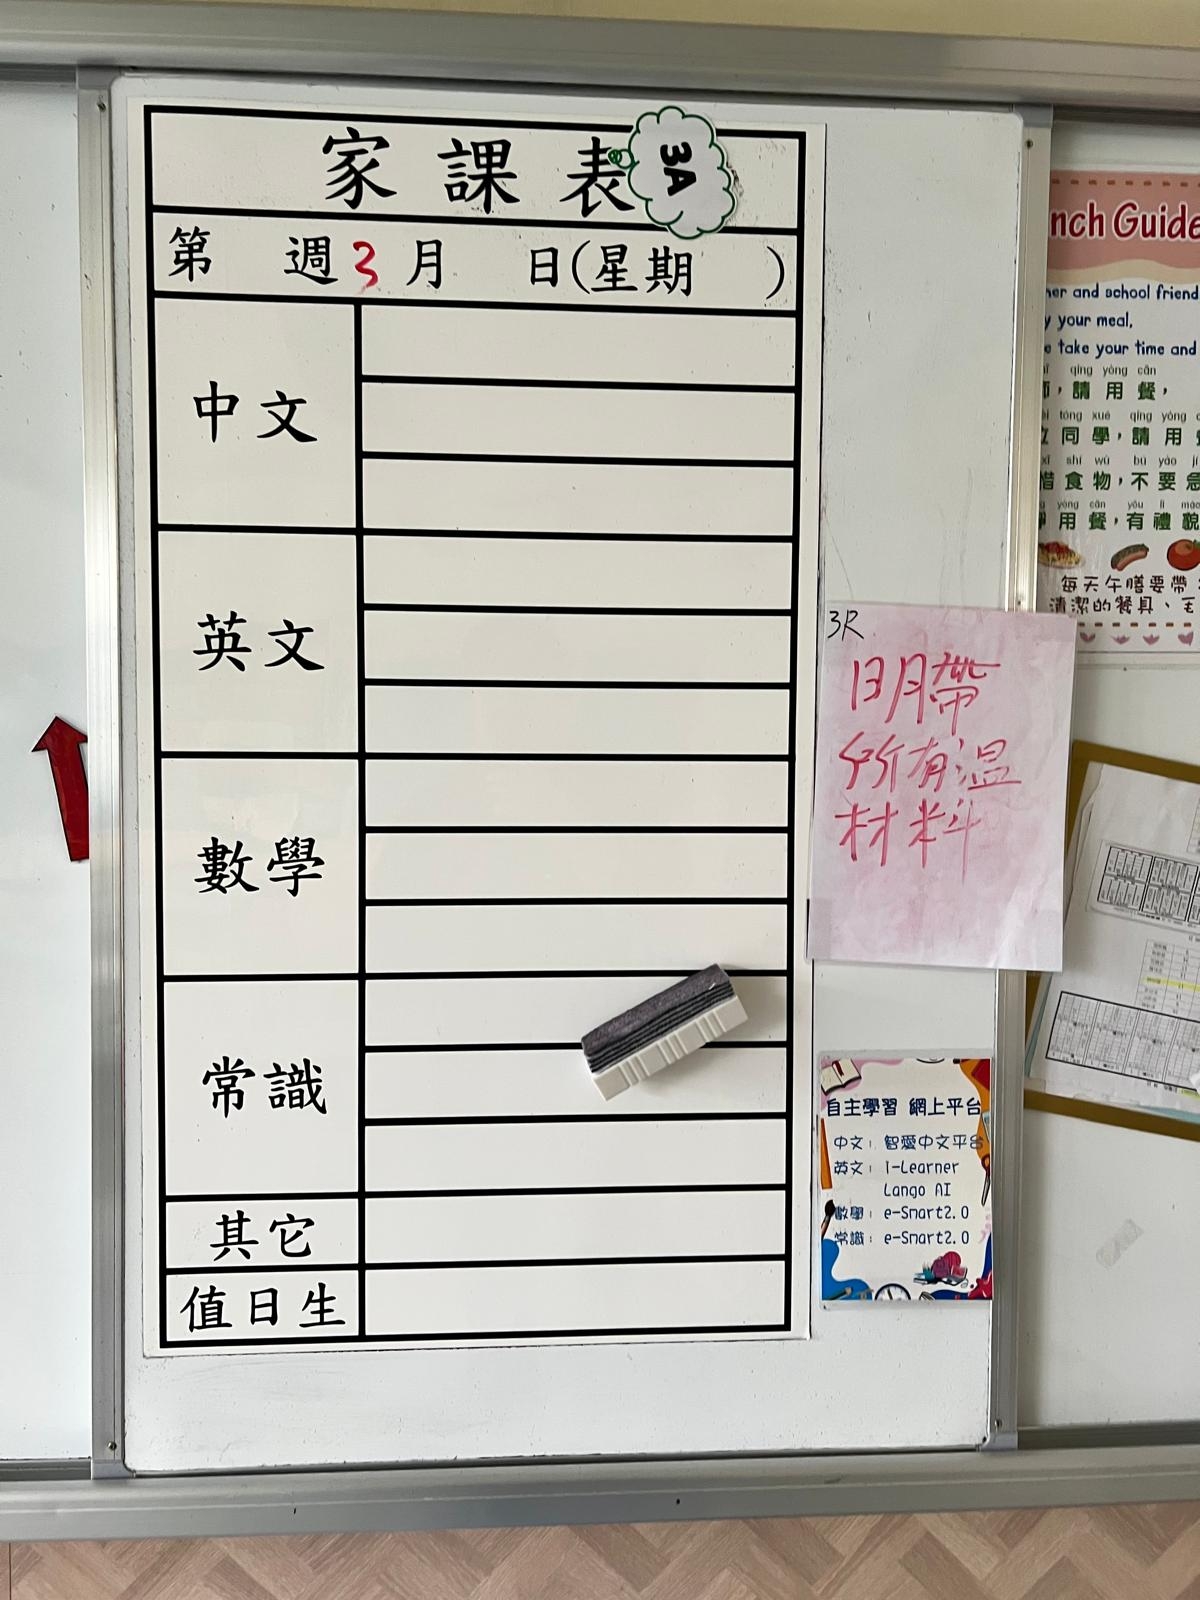 家課表
3A
第 週 3 月 日(星期 )
中文
英文
數學
常識
其它
值日生
nch Guide
her and school friend
y your meal,
e take your time and
qǐng yòng cān
，請用餐，
tóng xué qǐng yòng
同學，請用
shí wù bú yào jí
惜食物，不要急
yòng cān yǒu lǐ mào
用餐，有禮貌
每天午膳要帶
清潔的餐具、毛
3R
日月帶
所有溫
材料
自主學習 網上平台
中文： 智愛中文平台
英文： I-Learner
Lango AI
數學： e-Smart2.0
常識： e-Smart2.0